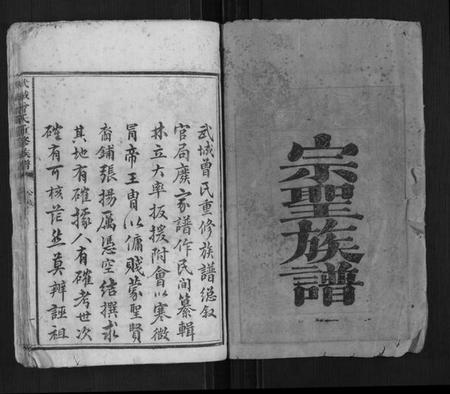 宗聖族譜
武城曾氏重修族譜總叙
官局廣家譜作民間纂輯
林立大率扳援附會以寒微
冒帝王胄以傭賤蒙聖賢
裔鋪張揚厲憑空結撰求
其地有確據人有確考世次
確有可核茫然莫辨誣祖
武城曾氏重修族譜